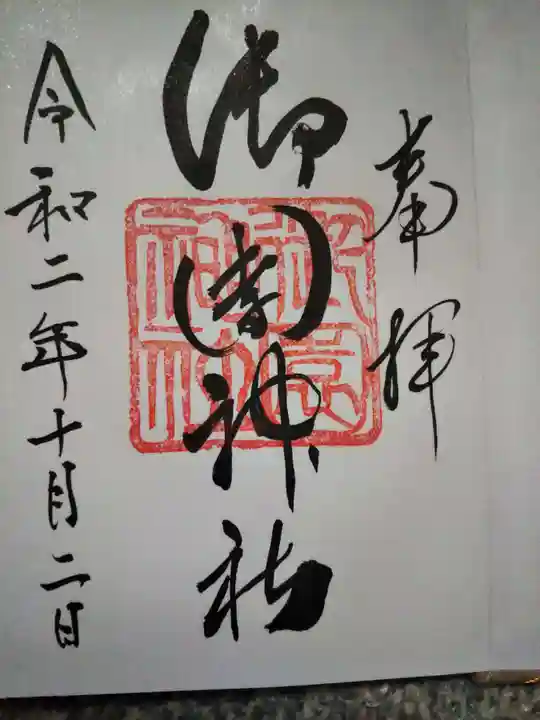 奉拝
御園神社
令和二年十月二日